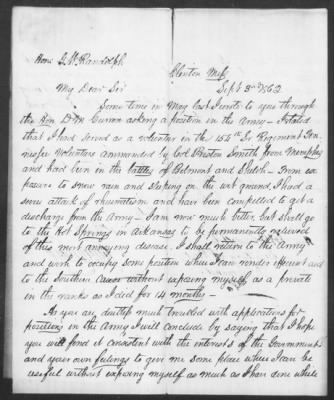 Hon: G. W. Randolph
Clinton Miss
Sept 3rd 1862
My Dear Sir
Some time in May last I wrote to you through
the Hon D M Currin asking a position in the Army - I stated
that I had served as a volunteer in the 154th Sr Regiment Ten-
nessee Volunteers commanded by Col Preston Smith from Memphis
and had been in the battles of Belmont and Shiloh - From ex
posures to snow rain and sleeping on the wet ground I had a
severe attack of rheumatism and have been compelled to get a
discharge from the Army - I am now much better, but shall go
to the Hot Springs in Arkansas to be permanently relieved
of this most annoying disease. I shall return to the Army
and wish to occupy some position where I can render efficient aid
to the Southern Cause without exposing myself, as a private
in the ranks as I did for 14 months -
As you are doubtless much troubled with applications for
positions in the Army I will conclude by saying that I hope
you will find it consistent with the interests of the Government
and your own feelings to give me some place where I can be
useful without exposing myself as much as I have done while